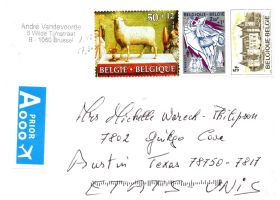 André Vandevoorde
5 Wilde Tijmstraat
B - 1080 Brussel
50
BELGIE - BELGIQUE
5F
A
PRIOR
Mrs Michelle Wareck-Philipson
7802 Ginkgo Cove
Austin Texas 78750-7817
ETATS UNIS